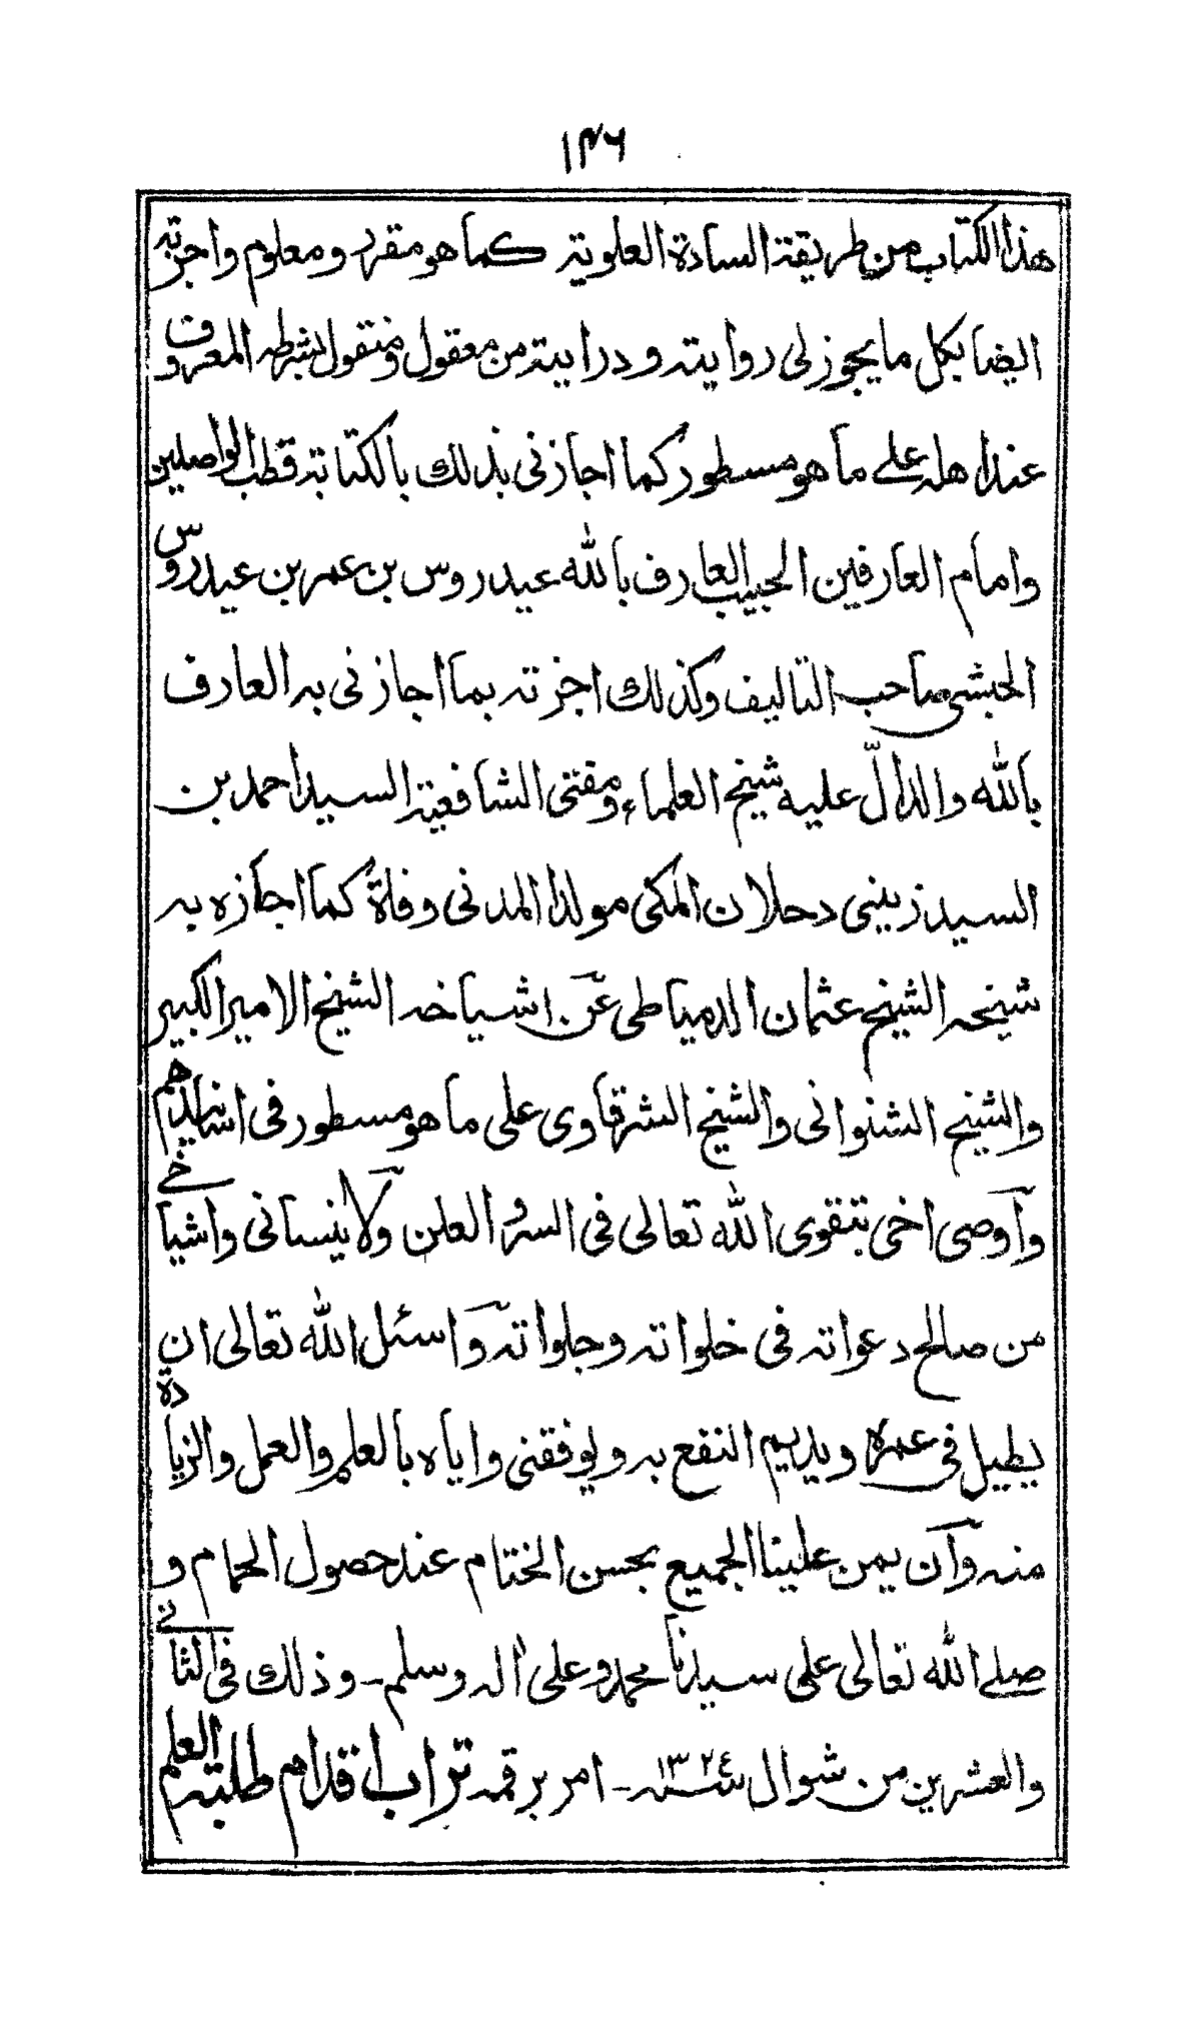 ١٣٦
هذا الكتاب من طريقة السادة العلوية كما هو مقرر و معلوم واجزته
ايضا بكل ما يجوز لى روايته و درايته من معقول و منقول بشرطه المعروف
عند اهله على ما هو مسطور كما اجازنى بذلك بالكتابة قطب الواصلين
وامام العارفين الحبيب العارف بالله عيدروس بن عمر بن عيدروس
الحبشى صاحب التاليف وكذلك اجزته بما اجازنى به العارف
بالله والدالّ عليه شيخ العلماء ومفتى الشافعية السيد احمد بن
السيد زينى دحلان المكى مولدا المدنى وفاة كما اجازه به
شيخه الشيخ عثمان الدمياطى عن اشياخه الشيخ الامير الكبير
والشيخ الشنوانى والشيخ الشرقاوى على ما هو مسطور فى اسانيدهم
وآوصى اخى بتقوى الله تعالى فى السر و العلن ولا ينسانى واشياخى
من صالح دعواته فى خلواته وجلواته وآسئل الله تعالى ان
يطيل فى عمره ويديم النفع به ويوفقنى واياه بالعلم والعمل والزيادة
منه وآن يمن علينا الجميع بحسن الختام عند حصول الحمام و
صلے الله تعالى على سيدنا محمد وعلى اله وسلم ـ وذلك فى الثانى
والعشرين من شوال سنه ١٣٢٤ ـ امر برقمه تراب اقدام طلبة العلم